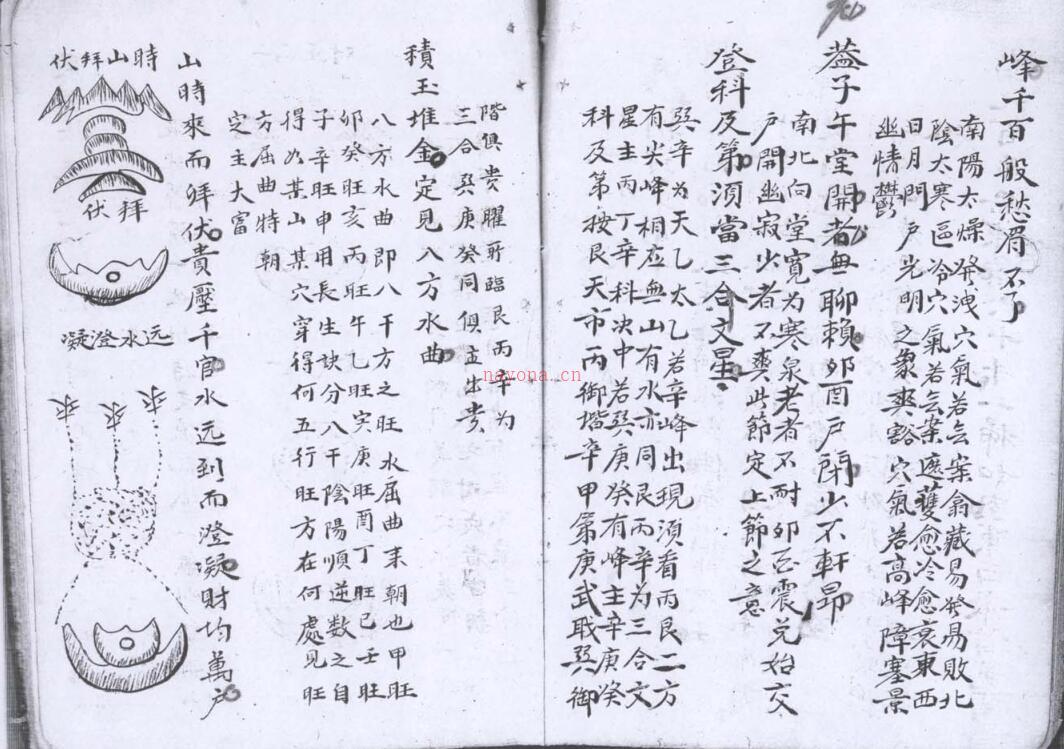 峰千百般愁眉不了
南陽太燥發洩穴氣若無案翕藏易發易敗北
陰太寒區冷穴氣若無案遮護愈冷愈哀東西
日月門戶光明之象爽豁穴氣若高峰障塞景
幽情鬱
蓋子午堂開老無聊賴夘酉戶閉少不軒昂
南北向堂寬為寒泉老者不耐夘酉震兌始交
戶開幽寂少者不爽此節定上節之意
登科及第須當三合文星
巽辛为天乙太乙若辛峰出現須看丙艮二方
有尖峰相应無山有水亦同艮丙辛為三合文
星主丙丁辛科决中若巽庚癸有峰主辛庚癸
科及第按艮天市丙御堦辛甲第庚武职巽御
階俱贵曜所臨艮丙辛为
三合巽庚癸同俱主生贵
積玉堆金定見八方水曲
八方水曲即八干方之旺水屈曲来朝也甲旺
夘癸旺亥丙旺午乙旺寅庚旺酉丁旺巳壬旺
子辛旺申用長生訣分八干陰陽順逆数之自
得如某山某穴穿得何五行旺方在何處見旺
方屈曲特朝
定主大富
山時來而拜伏貴壓千官水远到而澄凝財均萬户
時山拜伏
拜伏
远水澄凝
水
水
水
nayona.cn